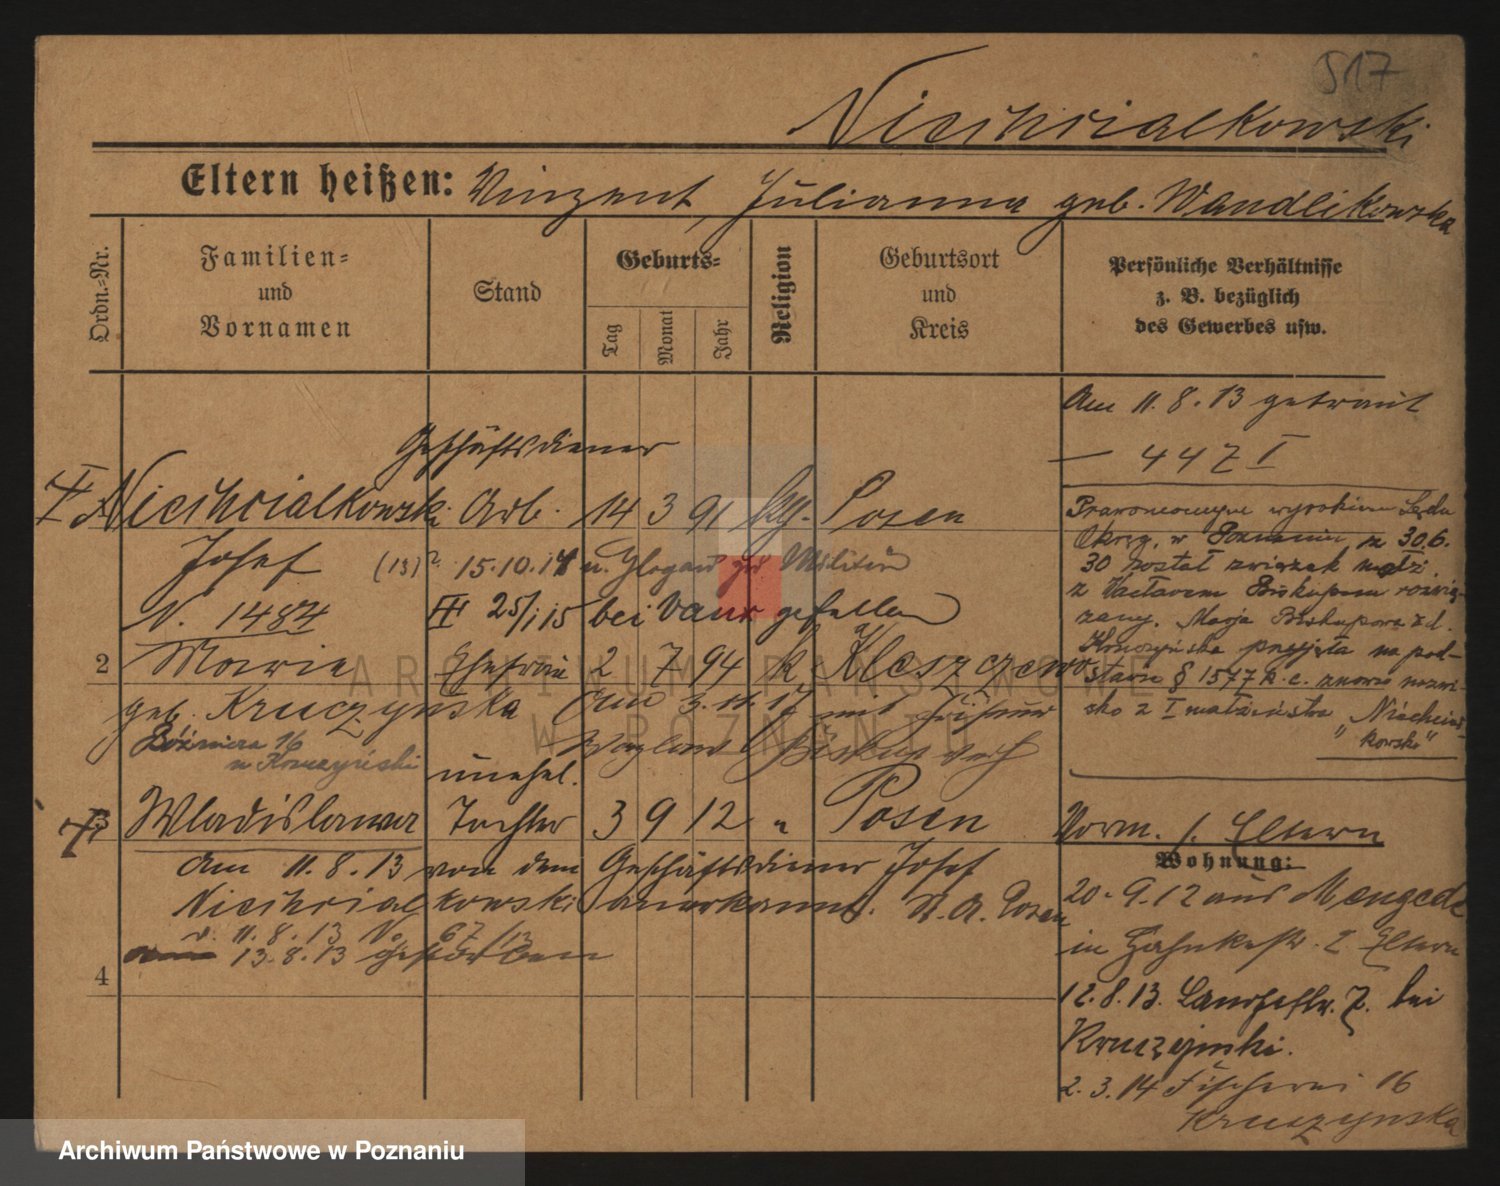 517
Niechcialkowski
Eltern heißen: Vinzent, Julianna geb. Wandlikowska
Ordn.-Nr.
Familien-
und
Vornamen
Stand
Geburts-
Tag
Monat
Jahr
Religion
Geburtsort
und
Kreis
Persönliche Verhältnisse
z. B. bezüglich
des Gewerbes usw.
Am 11.8.13 getraut
447 I
Geschäftsdiener
Niechcialkowski Arb. 14 3 91 Posen
Josef (13) 15.10.11 n. Glogau zu Militär
N. 1484 25/1 15 bei Vaux gefallen
2 Marie Ehefrau 2 7 94 k. Kleszczewo
geb. Kruczyńska Am 3.11.17 mit
Bóźnicza 16
unehel.
3 Wladislawa Tochter 3 9 12 " Posen
Am 11.8.13 von dem Geschäftsdiener Josef
Niechcialkowski anerkannt. St. A. Posen
v. 11.8.13 No 67/13
13.8.13 gestorben
4
Prawomocnym wyrokiem Sądu
Okręg. w Poznaniu z 30.6.
30 został związek małż.
z Wacławem Biskupem rozwią-
zany. Marja Biskupowa z d.
Kruczyńska przyjęła na pod-
stawie § 1577 k.c. znowu nazwi-
sko z I małżeństwa „Niechciał-
kowska"
Vorm. s. Eltern
Wohnung:
20.9.12 aus Mengede
in z. Eltern
12.8.13. 7. bei
Kruczynski.
2.3.14 Fischerei 16
Kruszynska
ARCHIWUM PAŃSTWOWE
W POZNANIU
Archiwum Państwowe w Poznaniu